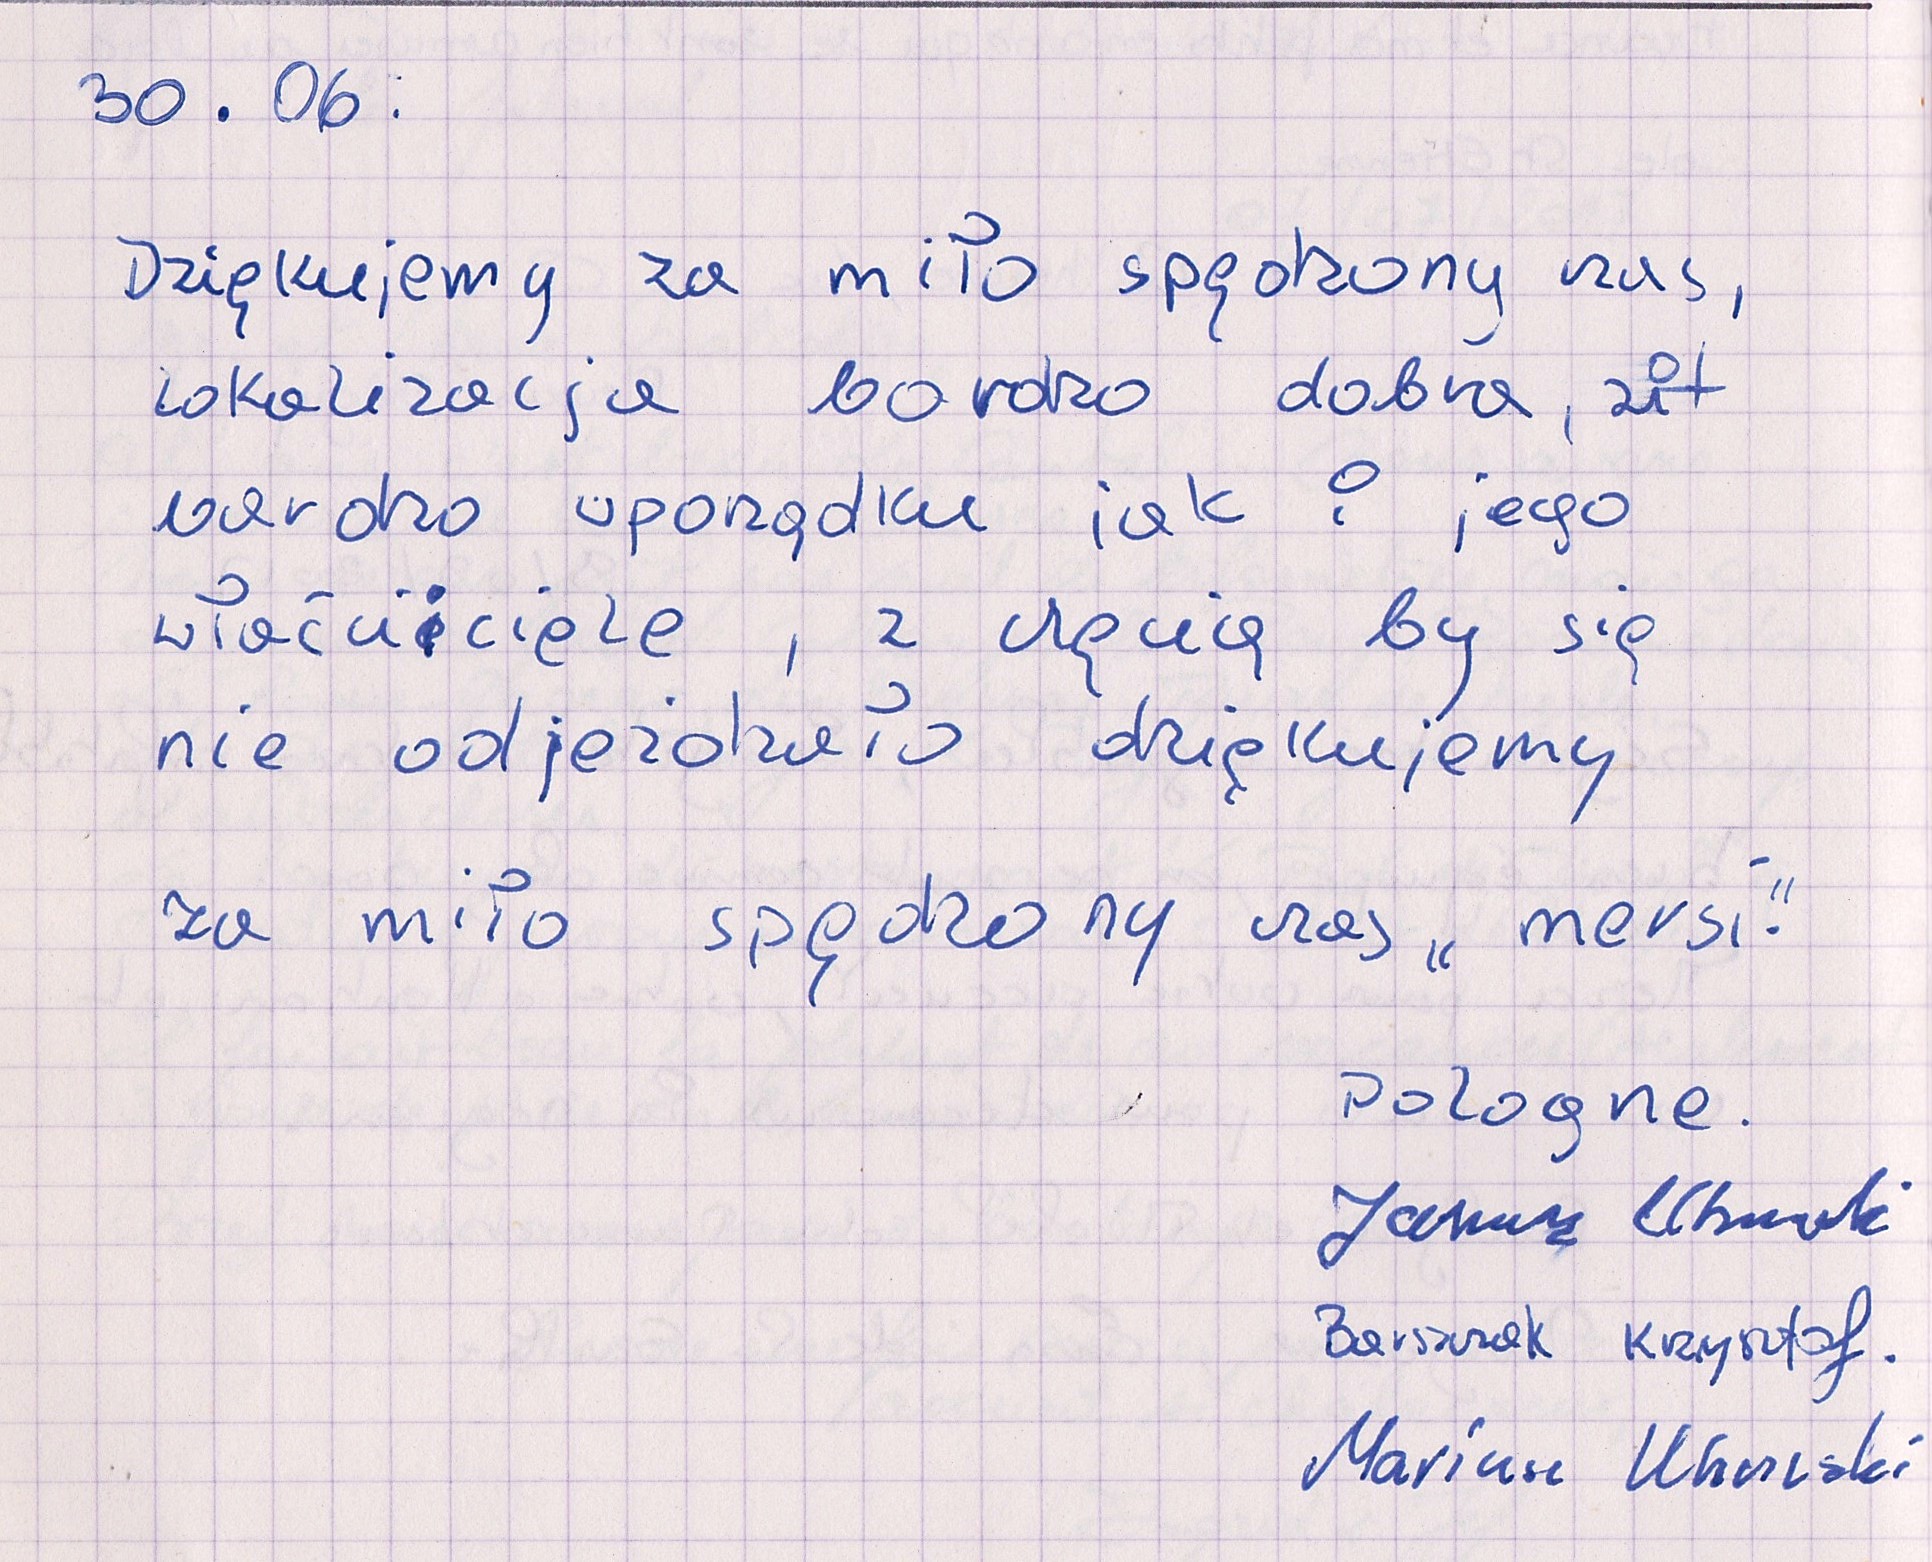 30.06:
Dziękujemy za miło spędzony czas,
lokalizacja bardzo dobra,
bardzo wporządku jak i jego
właściciele, z chęcią by się
nie odjeżdzało dziękujemy
za miło spędzony czas „mersi."
Pologne.
Janusz
Barszczak Krzysztof.
Mariusz